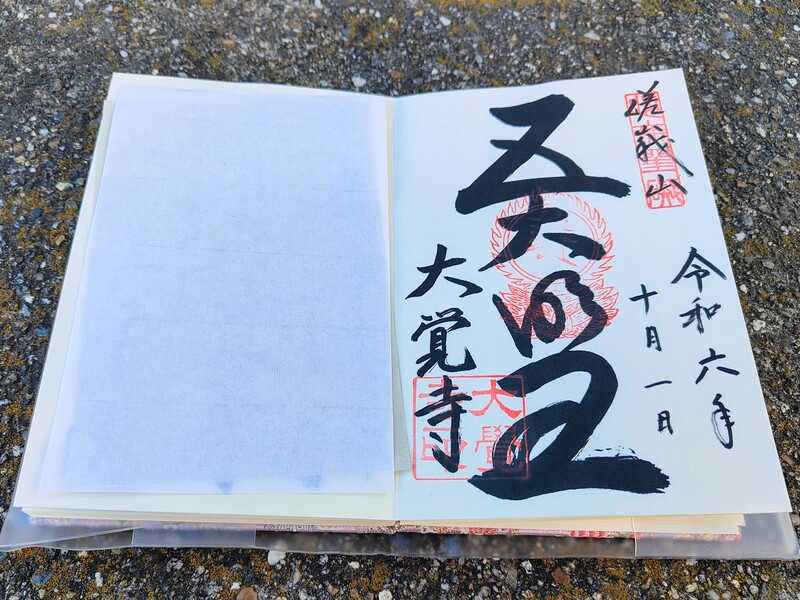 嵯峨山
令和六年
十月一日
五大明王
大覚寺
大覺
寺印